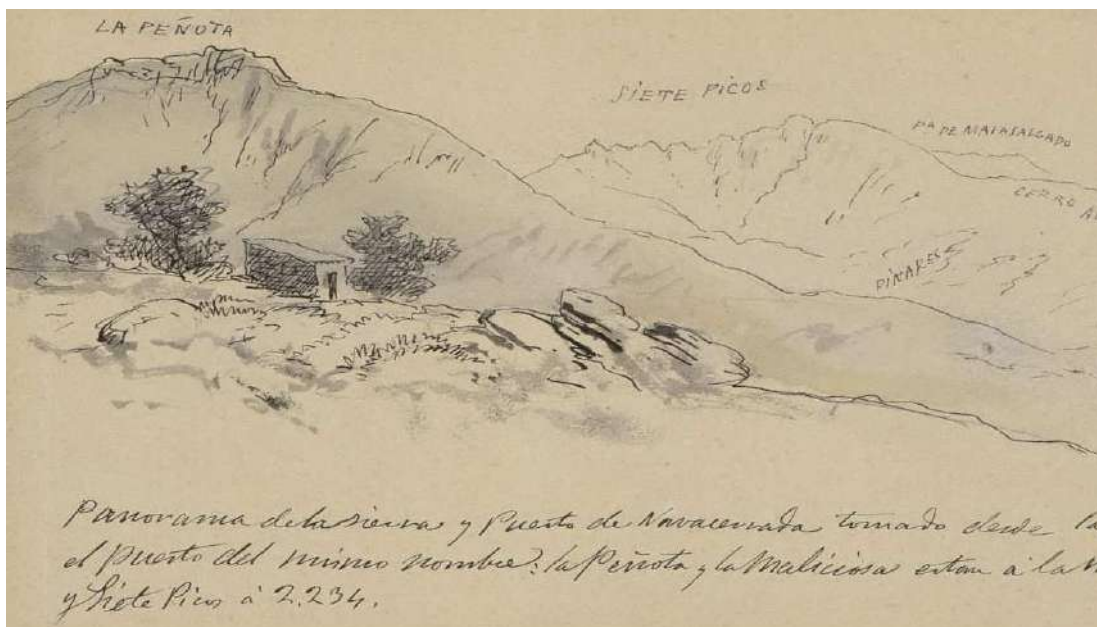 LA PEÑOTA
SIETE PICOS
Pª DE MATASALGADO
CERRO
PINARES
Panorama de la sierra y Puerto de Navacerrada tomado desde
el puerto del mismo nombre: la Peñota y la Maliciosa estan a la
y Siete Picos á 2.234.